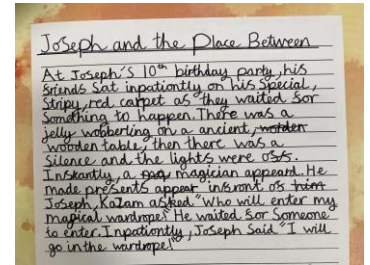 Joseph and the Place Between
At Joseph's 10th birthday party, his
friends sat inpationtly on his special,
Stripy, red carpet as they waited for
Something to happen. There was a
jelly wobberling on a ancient, wolden
wooden table, then there was a
silence and the lights were off.
Inskantly, a magician appeard. He
made presents appear infront of him
Joseph, Kazam asked "Who will enter my
magical wardrope?" He waited for Someone
to enter. Inpationtly, Joseph Said "I will
go in the wardrope!"